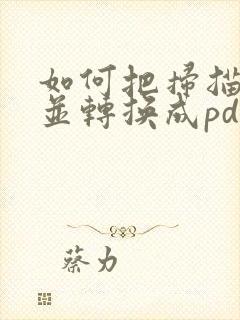 如何把掃描
並轉換成pd
蔡力